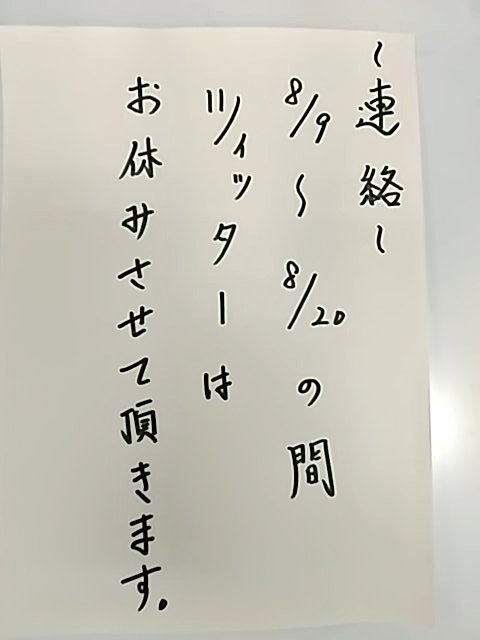 ～連絡～
8/9～8/20の間
ツィッターは
お休みさせて頂きます。